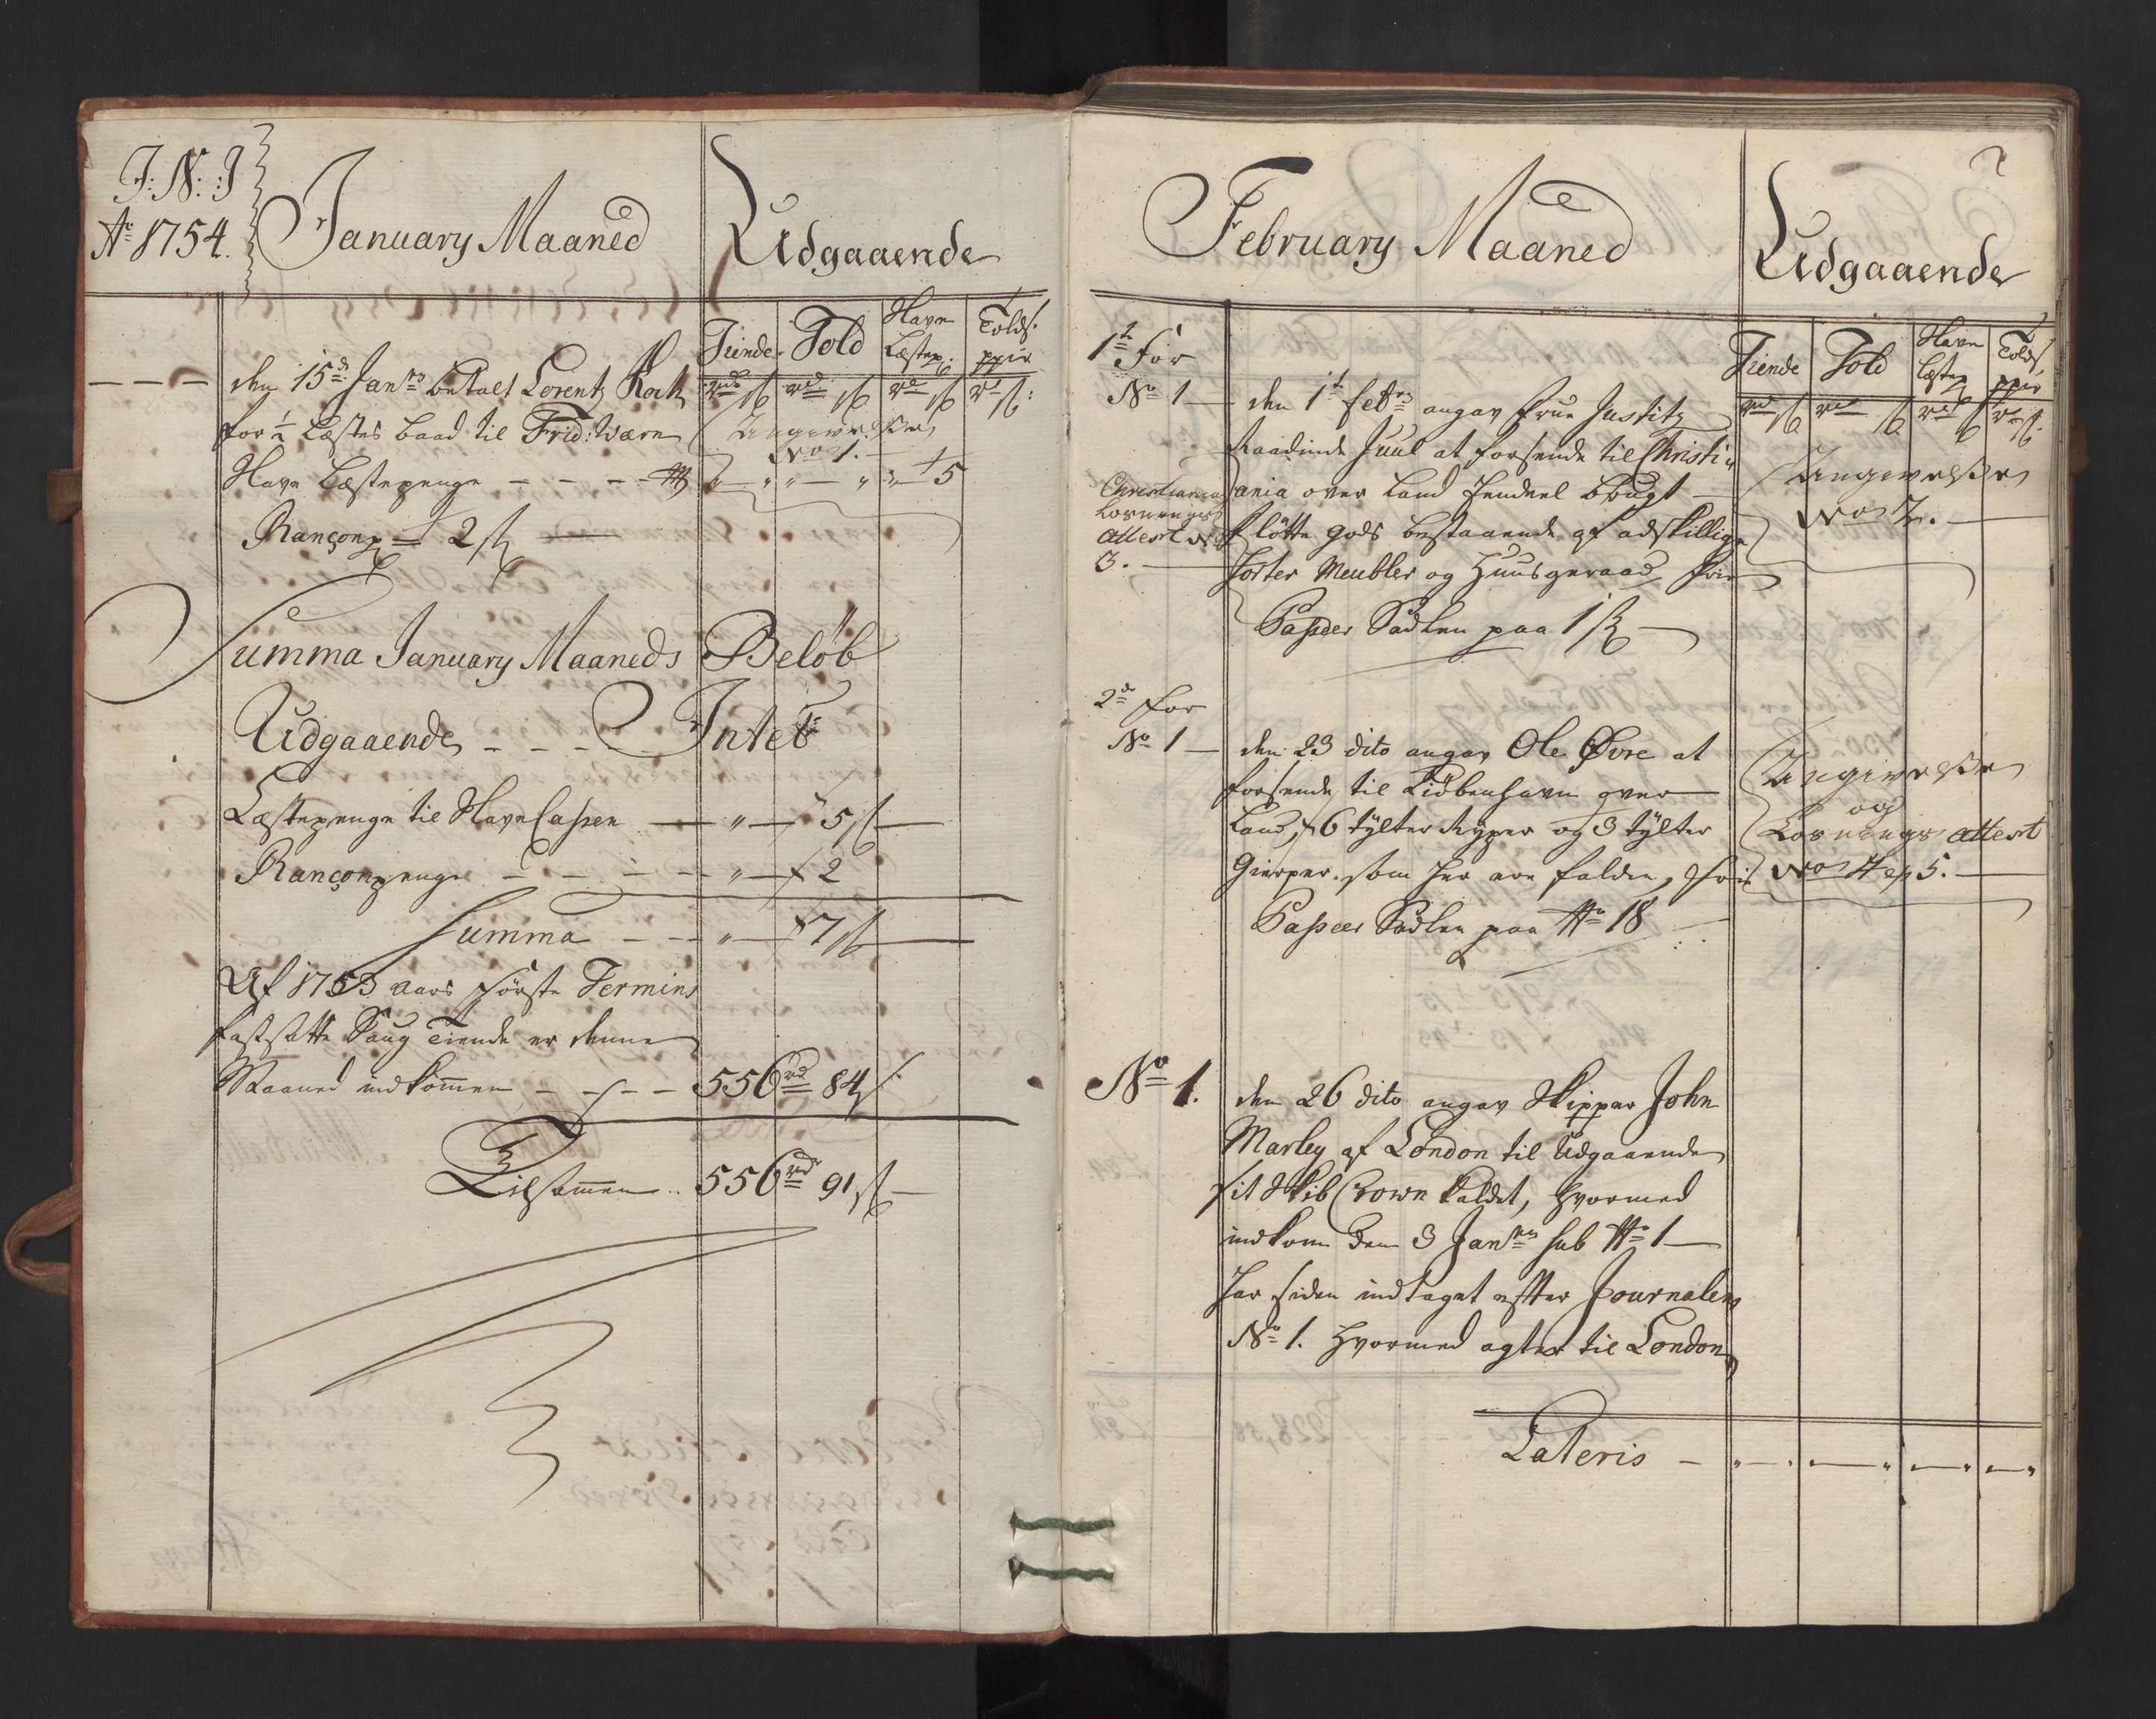 J: N: J
Ao 1754.
January Maaned
Udgaaende
Tiende
Told
Havn
Læstep:
Tolds:
ppir
rd ß rd ß rd ß rd ß
den 15de Janry betalt Lorentz Koch
for 1/2 Læstes baad til Frid:Værn
Havn Læstepenge - - -
Angivelse
No 1.
5
Rançonp 2 ß
Summa January Maaneds Beløb
Udgaaende - - - Intet
Læstepenge til HavneCassen — " — 5 ß
Rançonpenge - - - - " — 2
Summa - - - " — 7 ß
Af 1753 aars første Termins
fastsatte Saug Tiende er denne
Maaned indkommen - - - 556 rd 84 ß
Tilsammen .. 556 rd 91 ß
February Maaned
Udgaaende
Tiende
Told
Havn
Læstep
Tolds
ppir
rd ß rd ß rd ß rd ß
1te for
No 1
den 1te Febry angav Frue Justitz
Raadinde Juul at forsende til Christi
ania over Land hendeel brugt
flötte gods bestaaende af adskillige
sorter Meubler og Huusgeraad, frie
Passeer Sädlen paa 1 ß
Christiania
Losnings
attest No
3.
Angivelse
No 2.
2de for
No 1
den 23 dito angav Ole Øvre at
forsende til Kiöbenhavn over
Land, 6 tylter Ryper og 3 tylter
Hierper. som her ere falden, frie
Passeer Sädlen paa No 18
Angivelse
og
Losnings attest
No 4 og 5.
No 1.
den 26 dito angav Skipper John
Marley af London til Udgaaende
sit Skib Crown kaldet, hvormed
indkom den 3 Janry sub No 1
har siden indtaget efter Journalen
No 1. hvormed agter til London
Lateris